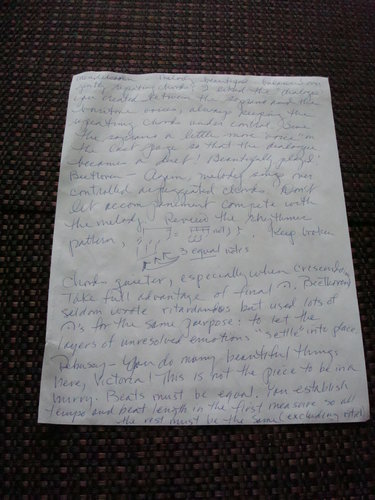 Mendelssohn melody beautiful
softly repeating chords! I loved the "dialogue"
you created between the soprano and the
baritone voices, always keeping the
repeating chords under control. Give
the soprano a little more voice on
the last page so that the dialogue
becomes a duet! Beautifully played!
Beethoven - Again, melody sings over
controlled arpeggiated chords. Don't
let accompaniment compete with
the melody. Review the rhythmic
pattern, Keep broken
3 equal notes
Chords quieter, especially when crescendoing.
Take full advantage of final Beethoven
seldom wrote ritardandos but used lots of
's for the same purpose: to let the
layers of unresolved emotions "settle" into place.
Debussy - You do many beautiful things
here, Victoria! This is not the piece to be in a
hurry. Beats must be equal. You establish
tempo and beat length in the first measure so all
the rest must be the same (excluding ritard